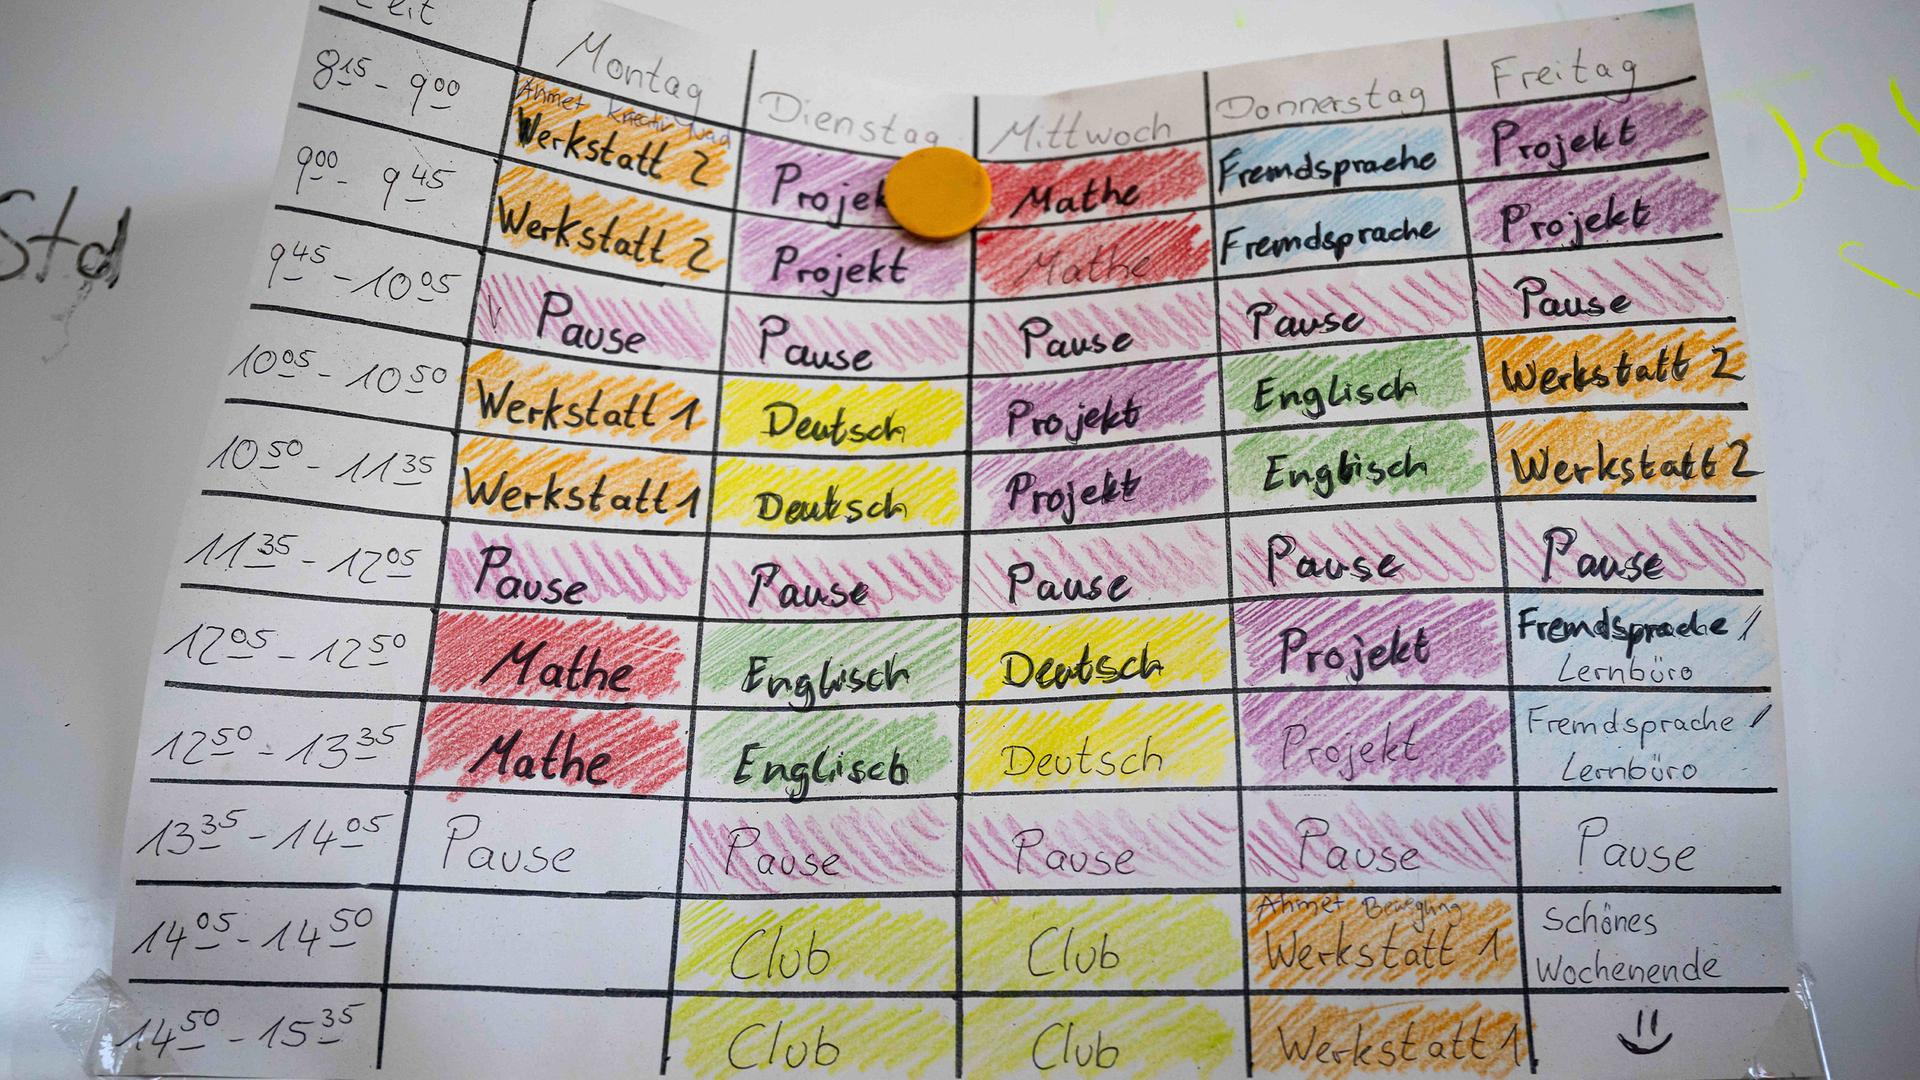 Montag Dienstag Mittwoch Donnerstag Freitag
8 15 - 9 00 Ahmet Kreativ Werkstatt 2 Projek Mathe Fremdsprache Projekt
9 00 - 9 45 Werkstatt 2 Projekt Mathe Fremdsprache Projekt
9 45 - 10 05 Pause Pause Pause Pause Pause
10 05 - 10 50 Werkstatt 1 Deutsch Projekt Englisch Werkstatt 2
10 50 - 11 35 Werkstatt 1 Deutsch Projekt Englisch Werkstatt 2
11 35 - 12 05 Pause Pause Pause Pause Pause
12 05 - 12 50 Mathe Englisch Deutsch Projekt Fremdsprache /
Lernbüro
12 50 - 13 35 Mathe Englisch Deutsch Projekt Fremdsprache /
Lernbüro
13 35 - 14 05 Pause Pause Pause Pause Pause
14 05 - 14 50 Club Club Ahmet Bewegung Werkstatt 1 Schönes
Wochenende
14 50 - 15 35 Club Club Werkstatt 1
Std